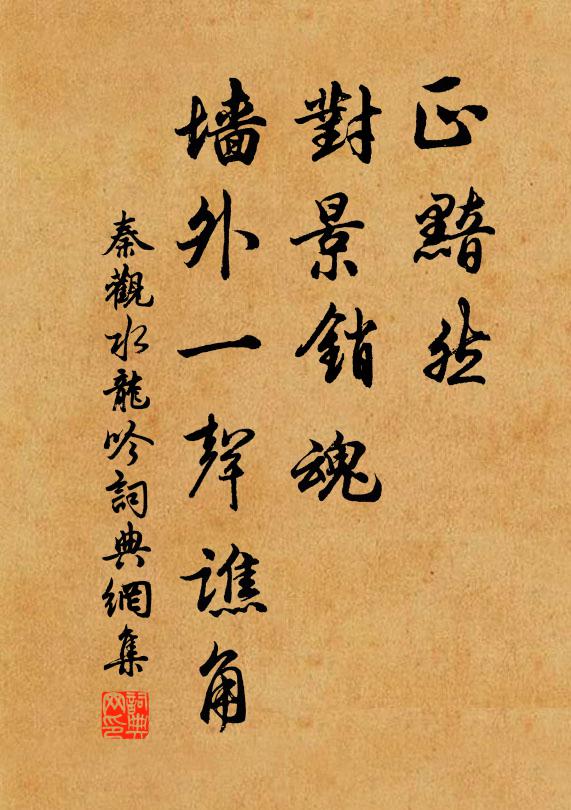 正黯然
對景銷魂
墙外一聲譙角
秦觀水龍吟詞典網集
詞典
网印